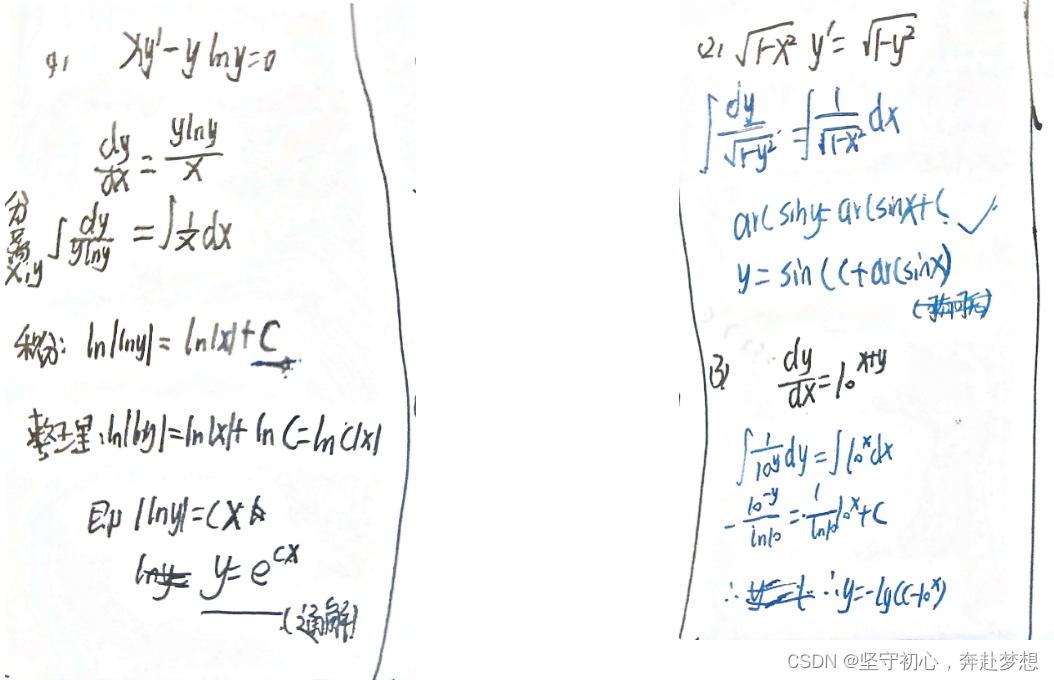 (1) xy' - y ln y = 0
dy/dx = y ln y / x
分离 x,y ∫ dy/(y ln y) = ∫ 1/x dx
积分: ln|ln y| = ln|x| + C
整理: ln|ln y| = ln|x| + ln C = ln C|x|
即 |ln y| = Cx
y = e^{Cx}
(通解)
(2) √(1-x²) y' = √(1-y²)
∫ dy/√(1-y²) = ∫ 1/√(1-x²) dx
arc sin y = arc sin x + C ✓
y = sin (C + arc sin x)
(3) dy/dx = 10^{x+y}
∫ 1/10^y dy = ∫ 10^x dx
- 10^{-y}/ln10 = 1/ln10 10^x + C
∴ ∴ y = -lg(C-10^x)
CSDN @坚守初心，奔赴梦想